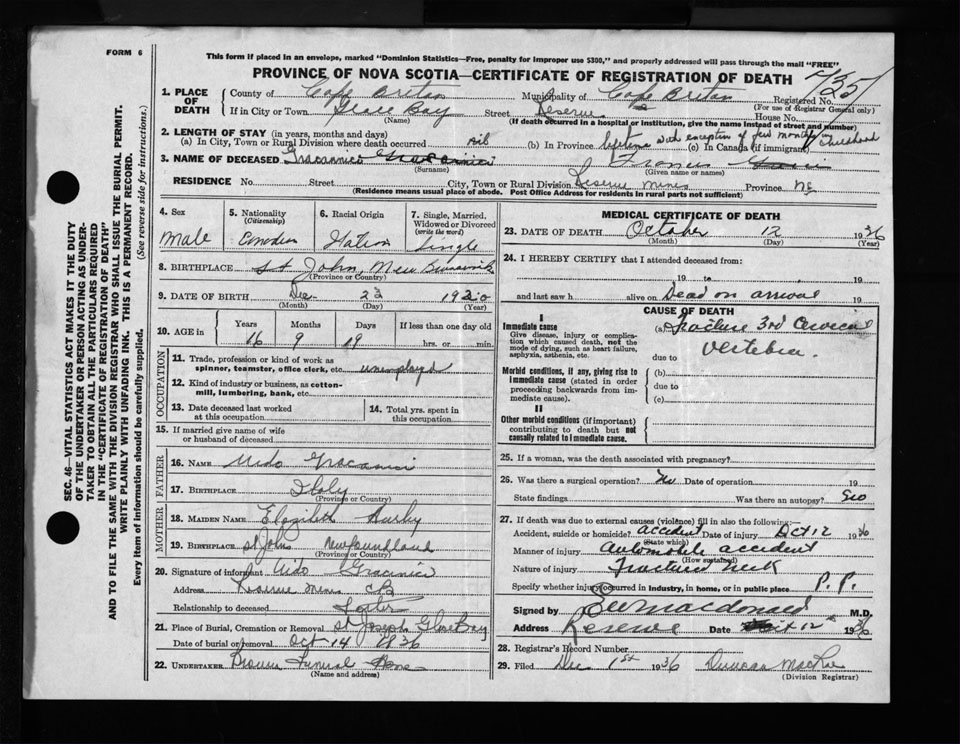 FORM 6
This form if placed in an envelope, marked "Dominion Statistics—Free, penalty for improper use $300," and properly addressed will pass through the mail "FREE"
PROVINCE OF NOVA SCOTIA—CERTIFICATE OF REGISTRATION OF DEATH
SEC. 46—VITAL STATISTICS ACT MAKES IT THE DUTY
OF THE UNDERTAKER OR PERSON ACTING AS UNDER-
TAKER TO OBTAIN ALL THE PARTICULARS REQUIRED
IN THE "CERTIFICATE OF REGISTRATION OF DEATH"
AND TO FILE THE SAME WITH THE DIVISION REGISTRAR WHO SHALL ISSUE THE BURIAL PERMIT.
WRITE PLAINLY WITH UNFADING INK. THIS IS A PERMANENT RECORD.
Every item of information should be carefully supplied. (See reverse side for instructions.)
1. PLACE OF DEATH County of Cape Breton Municipality of Cape Breton Registered No.
(For use of Registrar General only)
If in City or Town Glace Bay Street Reserve House No.
(Name) (If death occurred in a hospital or institution, give the name instead of street and number)
2. LENGTH OF STAY (in years, months and days)
(a) In City, Town or Rural Division where death occurred Nil (b) In Province with exception of few months in childhood (c) In Canada (if immigrant)
3. NAME OF DECEASED Francis
(Surname) (Given name or names)
RESIDENCE No. Street City, Town or Rural Division Reserve Mines Province NS
(Residence means usual place of abode. Post Office Address for residents in rural parts not sufficient)
4. Sex Male
5. Nationality (Citizenship) Canadian
6. Racial Origin Italian
7. Single, Married, Widowed or Divorced (write the word) Single
8. BIRTHPLACE St John, New Brunswick
(Province or Country)
9. DATE OF BIRTH Dec 23 1920
(Month) (Day) (Year)
10. AGE in Years Months Days If less than one day old
16 9 19 hrs. or min.
OCCUPATION
11. Trade, profession or kind of work as
spinner, teamster, office clerk, etc. unemployed
12. Kind of industry or business, as cotton-
mill, lumbering, bank, etc.
13. Date deceased last worked
at this occupation
14. Total yrs. spent in
this occupation
15. If married give name of wife
or husband of deceased
FATHER
16. NAME
17. BIRTHPLACE Italy
(Province or Country)
MOTHER
18. MAIDEN NAME Elizabeth
19. BIRTHPLACE St Johns Newfoundland
(Province or Country)
20. Signature of informant
Address Reserve Mines CB
Relationship to deceased Father
21. Place of Burial, Cremation or Removal St Joseph Glace Bay
Date of burial or removal Oct 14 1936
22. UNDERTAKER Funeral Home
(Name and address)
MEDICAL CERTIFICATE OF DEATH
23. DATE OF DEATH October 12 1936
(Month) (Day) (Year)
24. I HEREBY CERTIFY that I attended deceased from:
19 to 19
and last saw h alive on Dead on arrival 19
CAUSE OF DEATH
I
Immediate cause
Give disease, injury or complica-
tion which caused death, not the
mode of dying, such as heart failure,
asphyxia, asthenia, etc.
(a) Fracture 3rd Cervical
due to Vertebra.
Morbid conditions, if any, giving rise to
immediate cause (stated in order
proceeding backwards from im-
mediate cause).
(b)
due to
(c)
II
Other morbid conditions (if important)
contributing to death but not
causally related to immediate cause.
25. If a woman, was the death associated with pregnancy?
26. Was there a surgical operation? No Date of operation 19
State findings Was there an autopsy?
27. If death was due to external causes (violence) fill in also the following:—
Accident, suicide or homicide? accident Date of injury Oct 12 1936
(State which)
Manner of injury Automobile accident
(How sustained)
Nature of injury Fractured neck
Specify whether injury occurred in industry, in home, or in public place P.P.
Signed by MacDonald M.D.
Address Reserve Date Oct 12 1936
28. Registrar's Record Number
29. Filed Dec 1st 1936 Duncan MacRae
(Division Registrar)